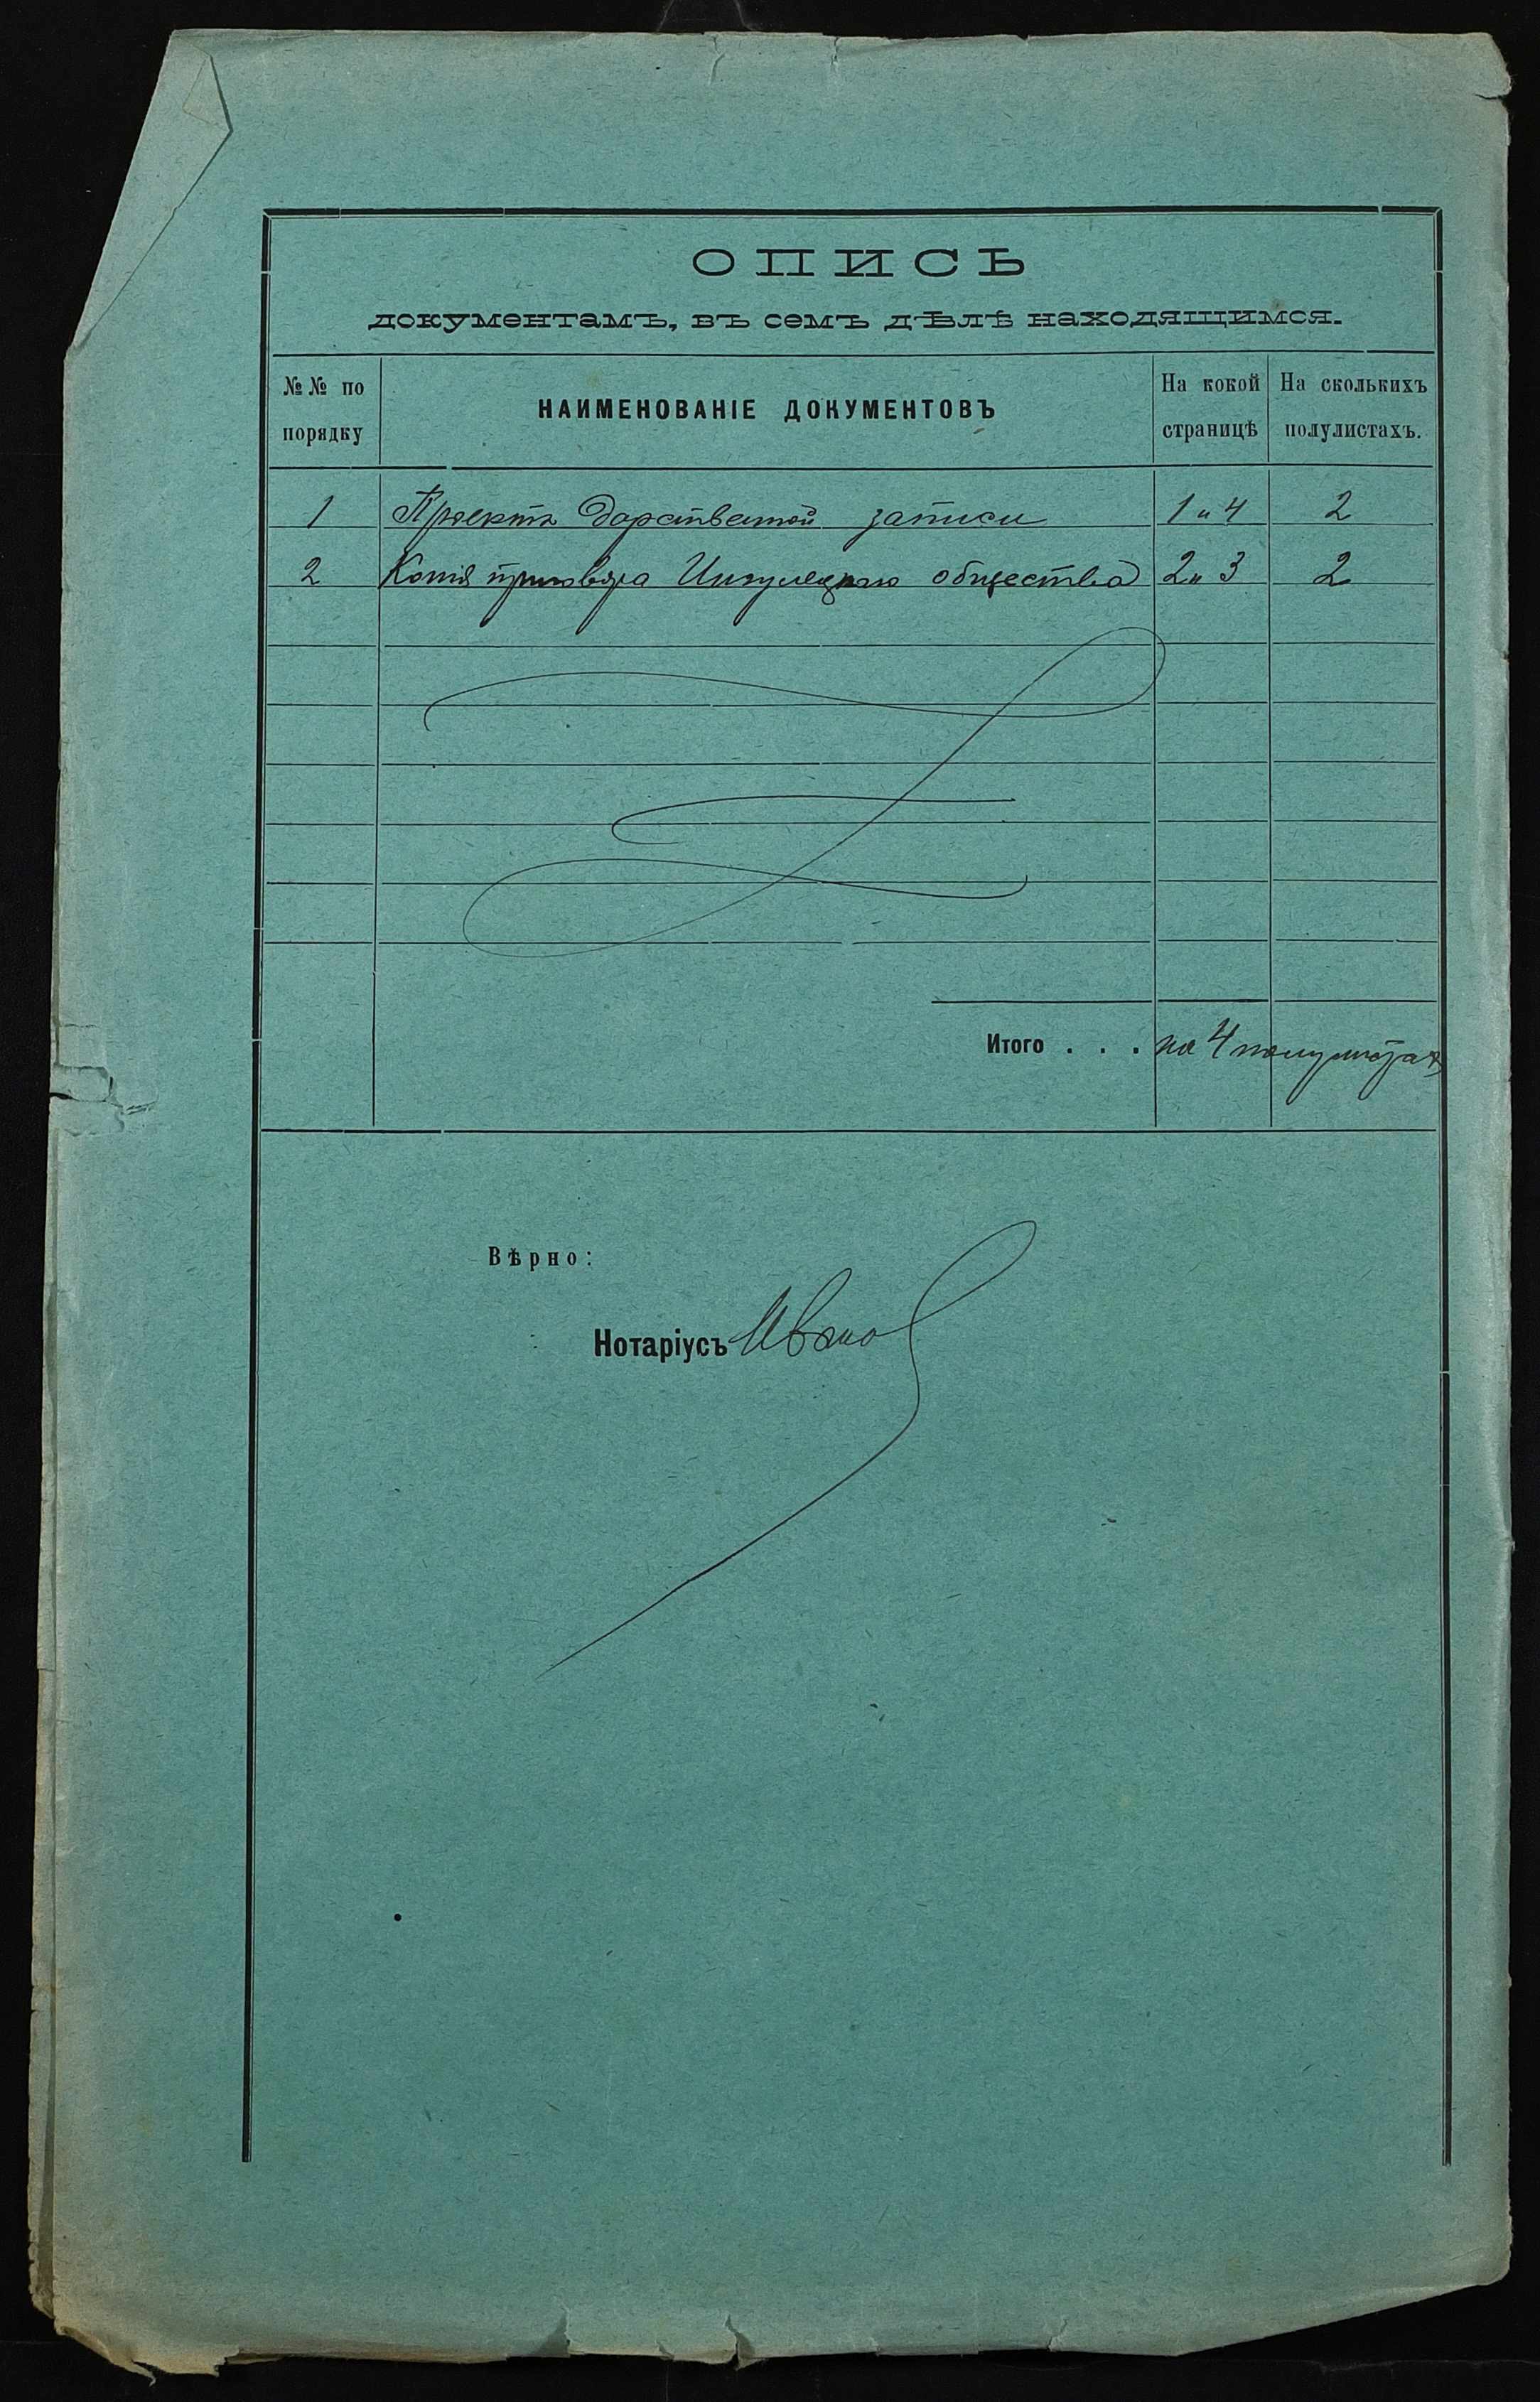 ОПИСЬ
документамъ, въ семъ дѣлѣ находящимся.
№№ по порядку
НАИМЕНОВАНІЕ ДОКУМЕНТОВЪ
На кокой страницѣ
На сколькихъ полулистахъ.
1 Проектъ дарственной записи 1 и 4 2
2 Копія приговора Ингулецкаго общества 2 и 3 2
Итого . . . на 4 полулистахъ
Вѣрно:
Нотаріусъ Иванов